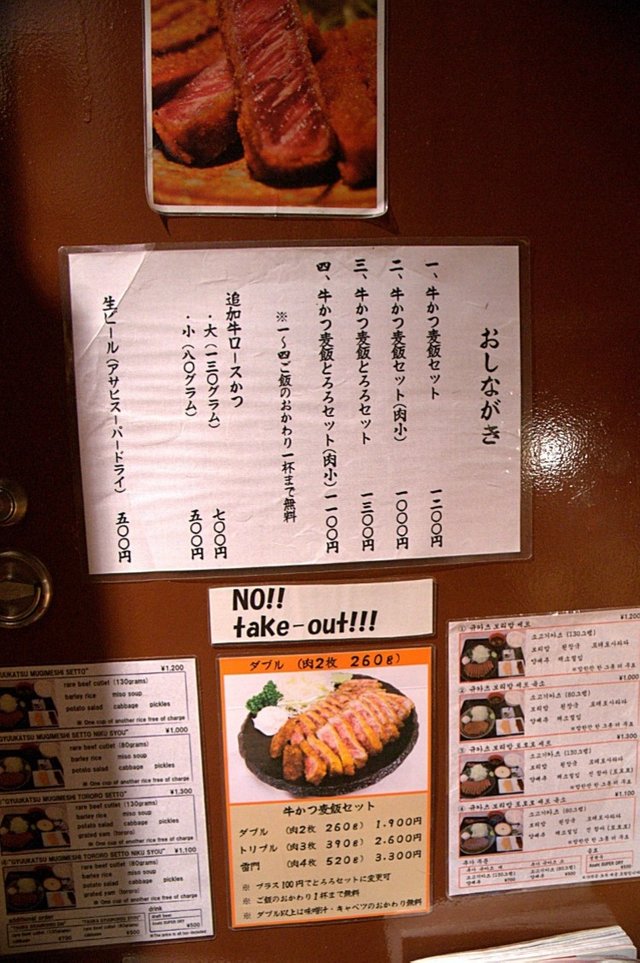 おしながき
一、牛かつ麦飯セット 一二〇〇円
二、牛かつ麦飯セット(肉小) 一〇〇〇円
三、牛かつ麦飯とろろセット 一三〇〇円
四、牛かつ麦飯とろろセット(肉小) 一一〇〇円
※一〜四ご飯のおかわり一杯まで無料
追加牛ロースかつ
・大(一三〇グラム) 七〇〇円
・小(八〇グラム) 五〇〇円
生ビール(アサヒスーパードライ) 五〇〇円
NO!!
take-out!!!
UKATSU MUGIMESHI SETTO" ¥1,200
rare beef cutlet (130grams)
barley rice miso soup
potato salad cabbage pickles
※ One cup of another rice free of charge
UUKATSU MUGIMESHI SETTO NIKU SYOU" ¥1,000
rare beef cutlet (80grams)
barley rice miso soup
potato salad cabbage pickles
※ One cup of another rice free of charge
"GYUUKATSU MUGIMESHI TORORO SETTO" ¥1,300
rare beef cutlet (130grams)
barley rice miso soup
potato salad cabbage pickles
grated yam (tororo)
※ One cup of another rice free of charge
"GYUUKATSU MUGIMESHI TORORO SETTO NIKU SYOU" ¥1,100
rare beef cutlet (80grams)
barley rice miso soup
potato salad cabbage pickles
grated yam (tororo)
※ One cup of another rice free of charge
additional order
rare beef cutlet (130grams) ¥700
drink
draft beer
Asahi SUPER DRY ¥500
ダブル (肉2枚 260g)
牛かつ麦飯セット
ダブル (肉2枚 260g) 1.900円
トリプル (肉3枚 390g) 2.600円
雷門 (肉4枚 520g) 3.300円
※ プラス100円でとろろセットに変更可
※ ご飯のおかわり1杯まで無料
※ ダブル以上は味噌汁・キャベツのおかわり無料
① 규카츠 보리밥 세트 ¥1,200
소고기카츠 (130그램)
보리밥 된장국 포테토사라다
양배추 채소절임
② 규카츠 보리밥 세트 육소 ¥1,000
소고기카츠 (80그램)
보리밥 된장국 포테토사라다
양배추 채소절임
③ 규카츠 보리밥 토로로 세트 ¥1,300
소고기카츠 (130그램)
보리밥 된장국 포테토사라다
④ 규카츠 보리밥 토로로 세트 육소 ¥1,100
소고기카츠 (80그램)
보리밥 된장국 포테토사라다
Asahi SUPER DRY
¥500